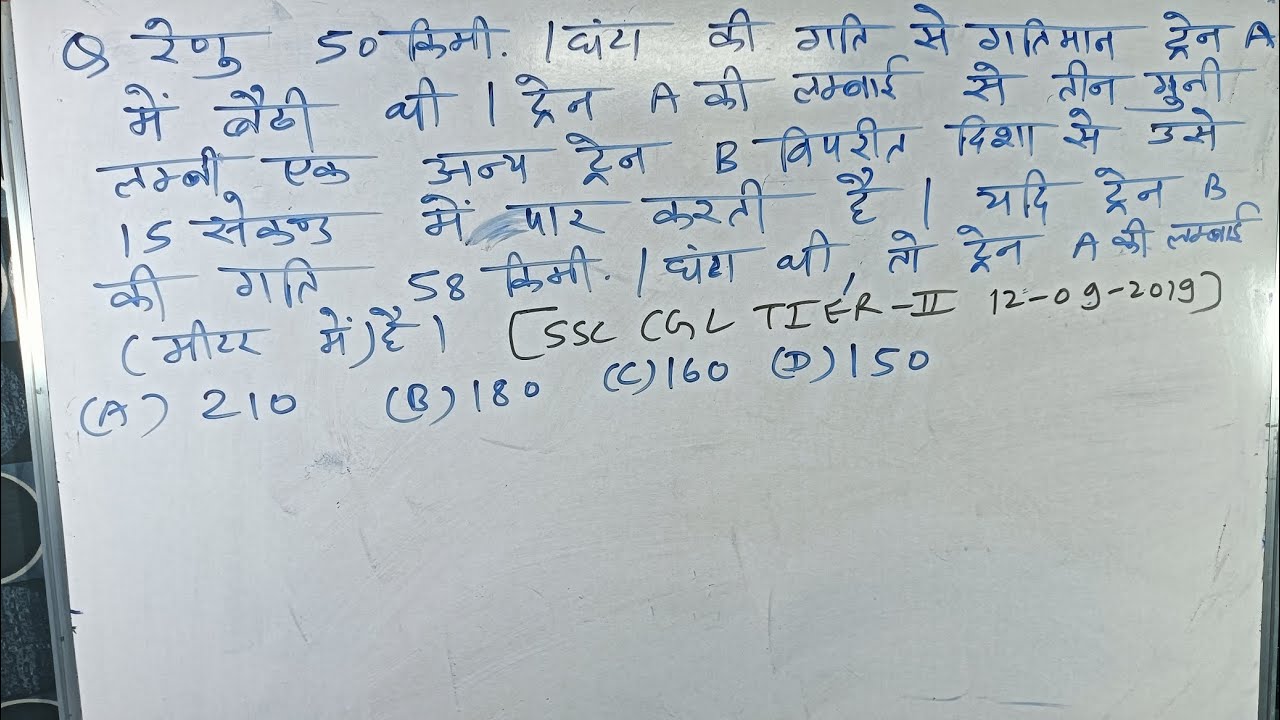 Q रेणु 50 किमी. / घंटा की गति से गतिमान ट्रेन A
में बैठी थी | ट्रेन A की लम्बाई से तीन गुनी
लम्बी एक अन्य ट्रेन B विपरीत दिशा से उसे
15 सेकण्ड में पार करती है | यदि ट्रेन B
की गति 58 किमी. / घंटा थी, तो ट्रेन A की लम्बाई
(मीटर में) है | [SSC CGL TIER-II 12-09-2019]
(A) 210 (B) 180 (C) 160 (D) 150